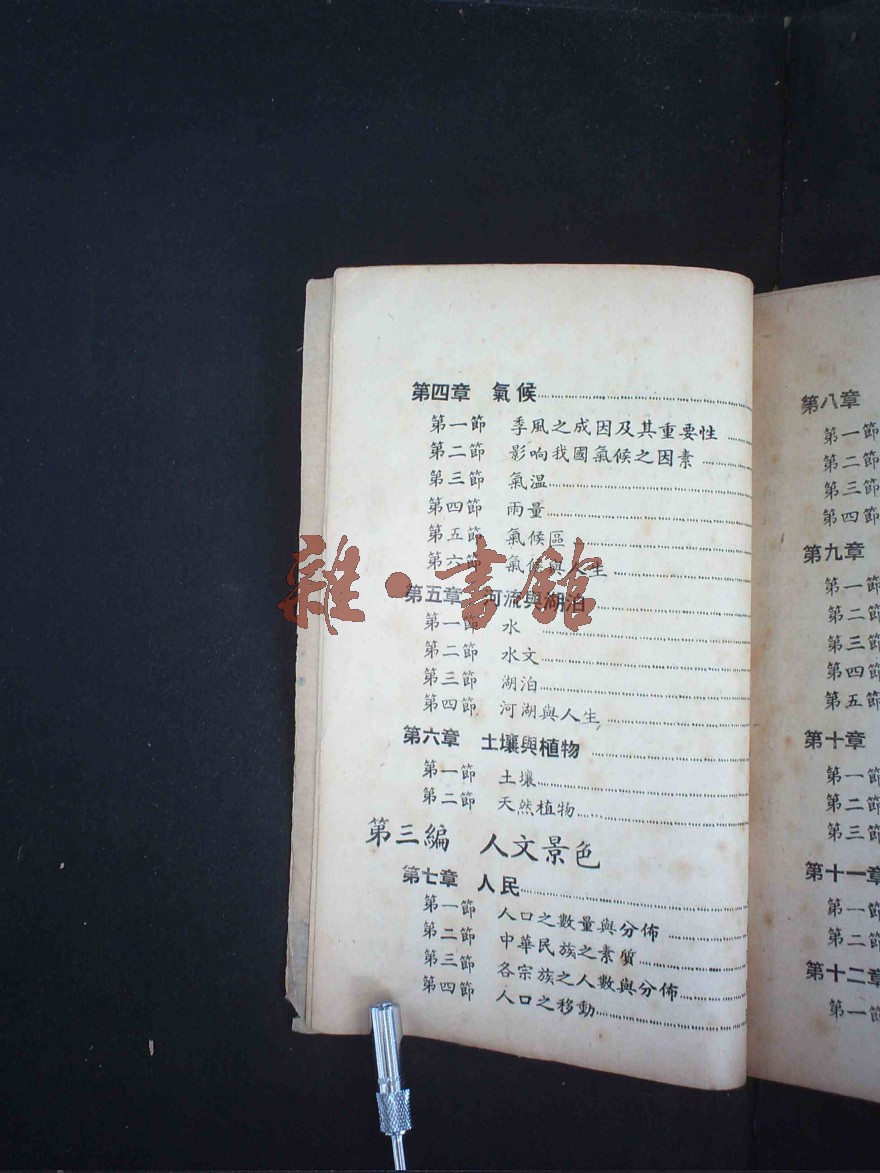 第四章 氣候
第一節 季風之成因及其重要性
第二節 影响我國氣候之因素
第三節 氣温
第四節 雨量
第五節 氣候區
第六節 氣候與人生
第五章 河流與湖泊
第一節 水
第二節 水文
第三節 湖泊
第四節 河湖與人生
第六章 土壤與植物
第一節 土壤
第二節 天然植物
第三編 人文景色
第七章 人民
第一節 人口之數量與分佈
第二節 中華民族之素質
第三節 各宗族之人數與分佈
第四節 人口之移動
第八章
第一節
第二節
第三節
第四節
第九章
第一節
第二節
第三節
第四節
第五節
第十章
第一節
第二節
第三節
第十一章
第一節
第二節
第十二章
第一節
雜·書館